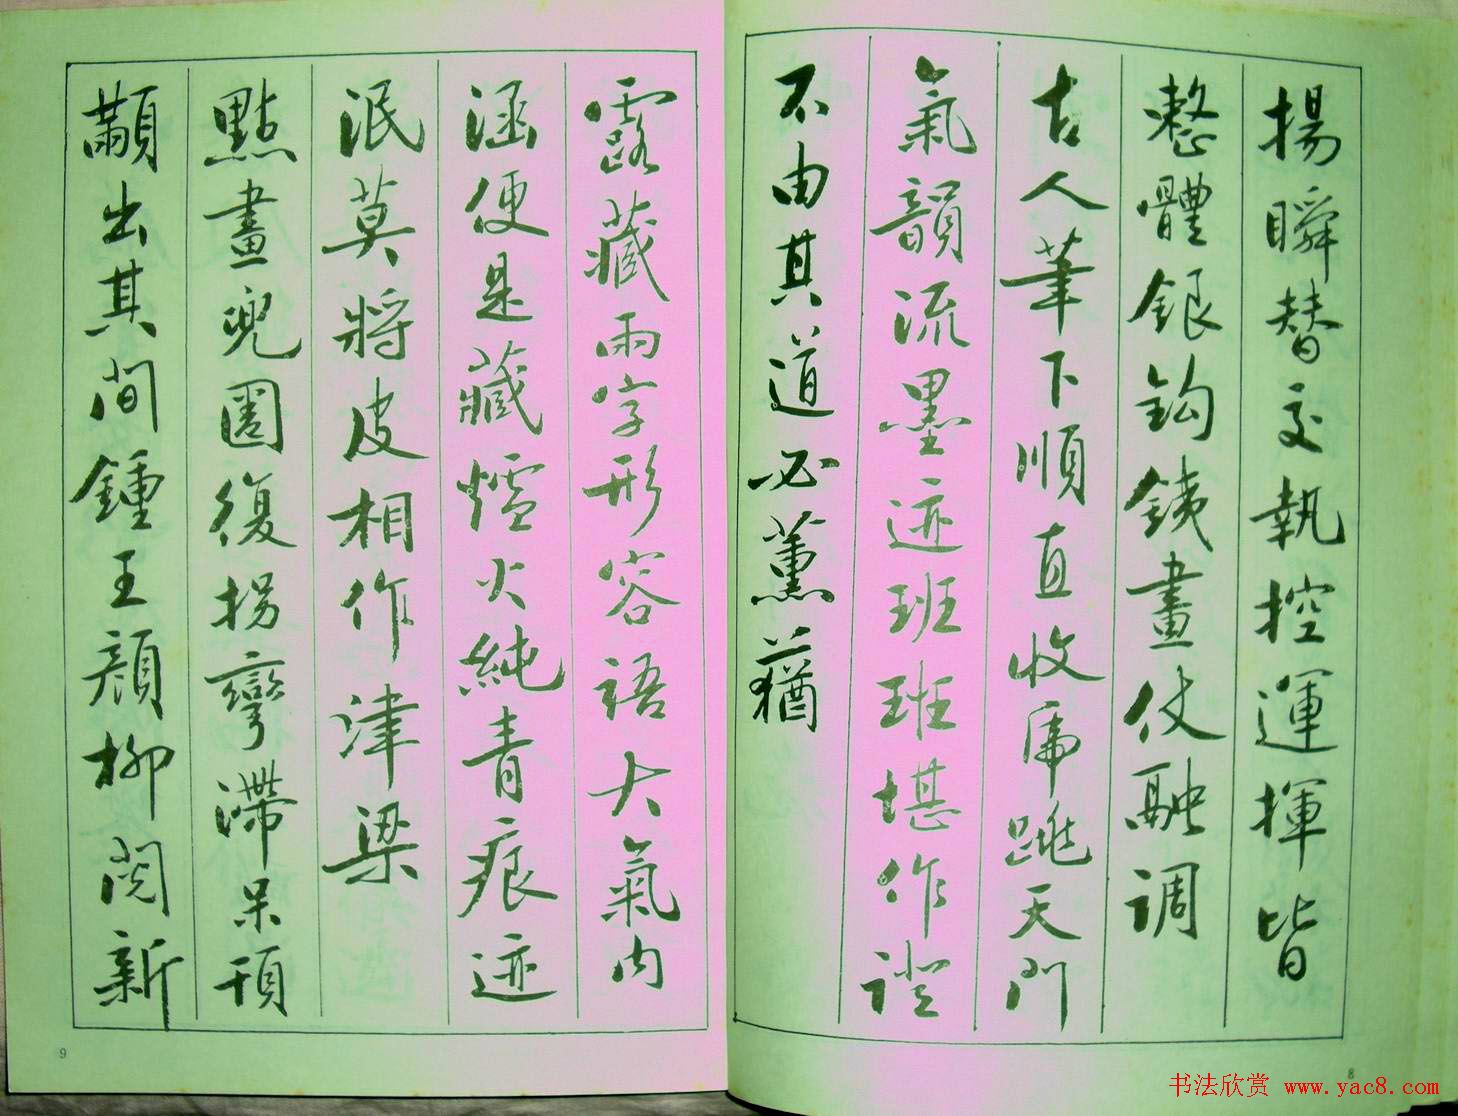 揚瞬替交執控運揮皆
整體銀鈎銕畫仗融调
古人筆下順直收虎跳天門
氣韻流墨迹班班堪作證
不由其道必薰蕕
8
露藏兩字形容語大氣内
涵便是藏爐火純青痕迹
泯莫將皮相作津梁
點畫兜圈復拐彎滯呆頇
顢出其間鍾王顏柳閲新
9
书法欣赏 www.yac8.com